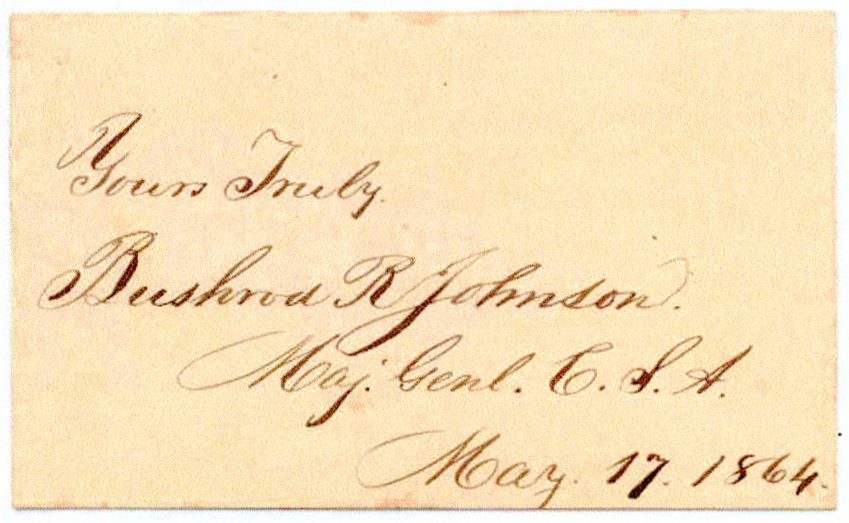 Yours Truly.
Bushrod R Johnson.
Maj. Genl. C. S. A.
May. 17. 1864.